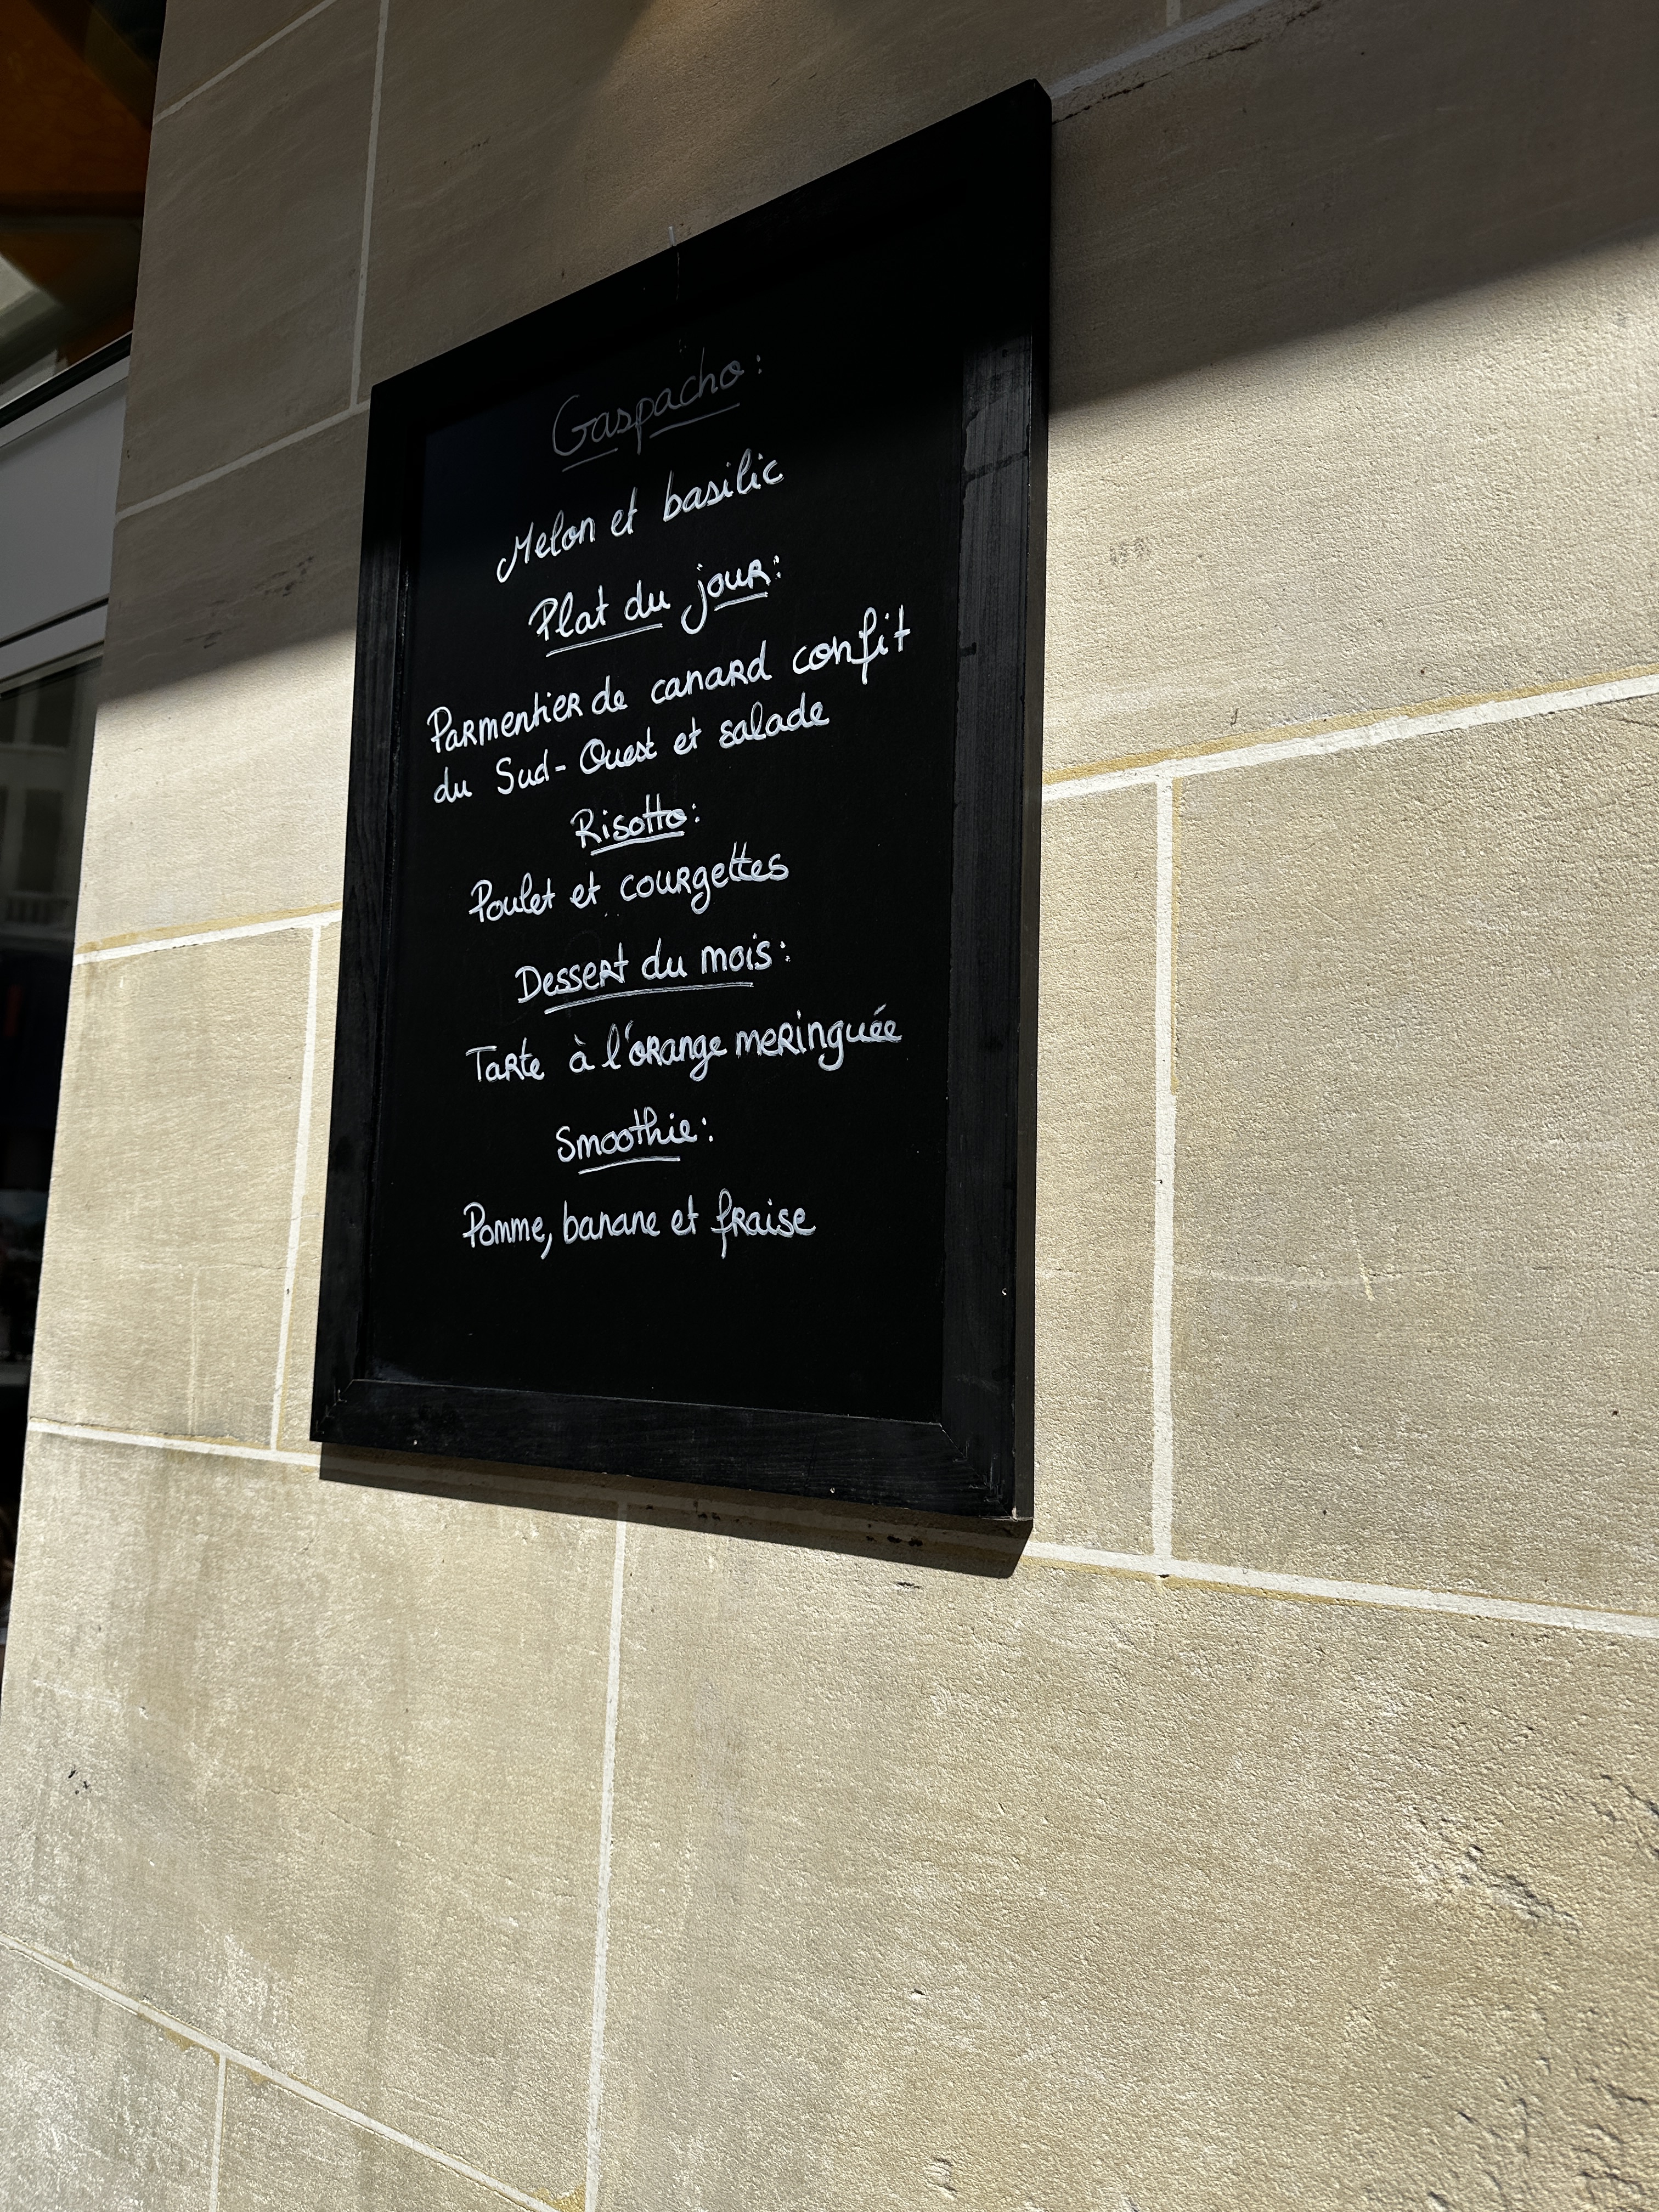 Gaspacho :
Melon et basilic
Plat du jour :
Parmentier de canard confit
du Sud-Ouest et salade
Risotto :
Poulet et courgettes
Dessert du mois :
Tarte à l'orange meringuée
Smoothie :
Pomme, banane et fraise